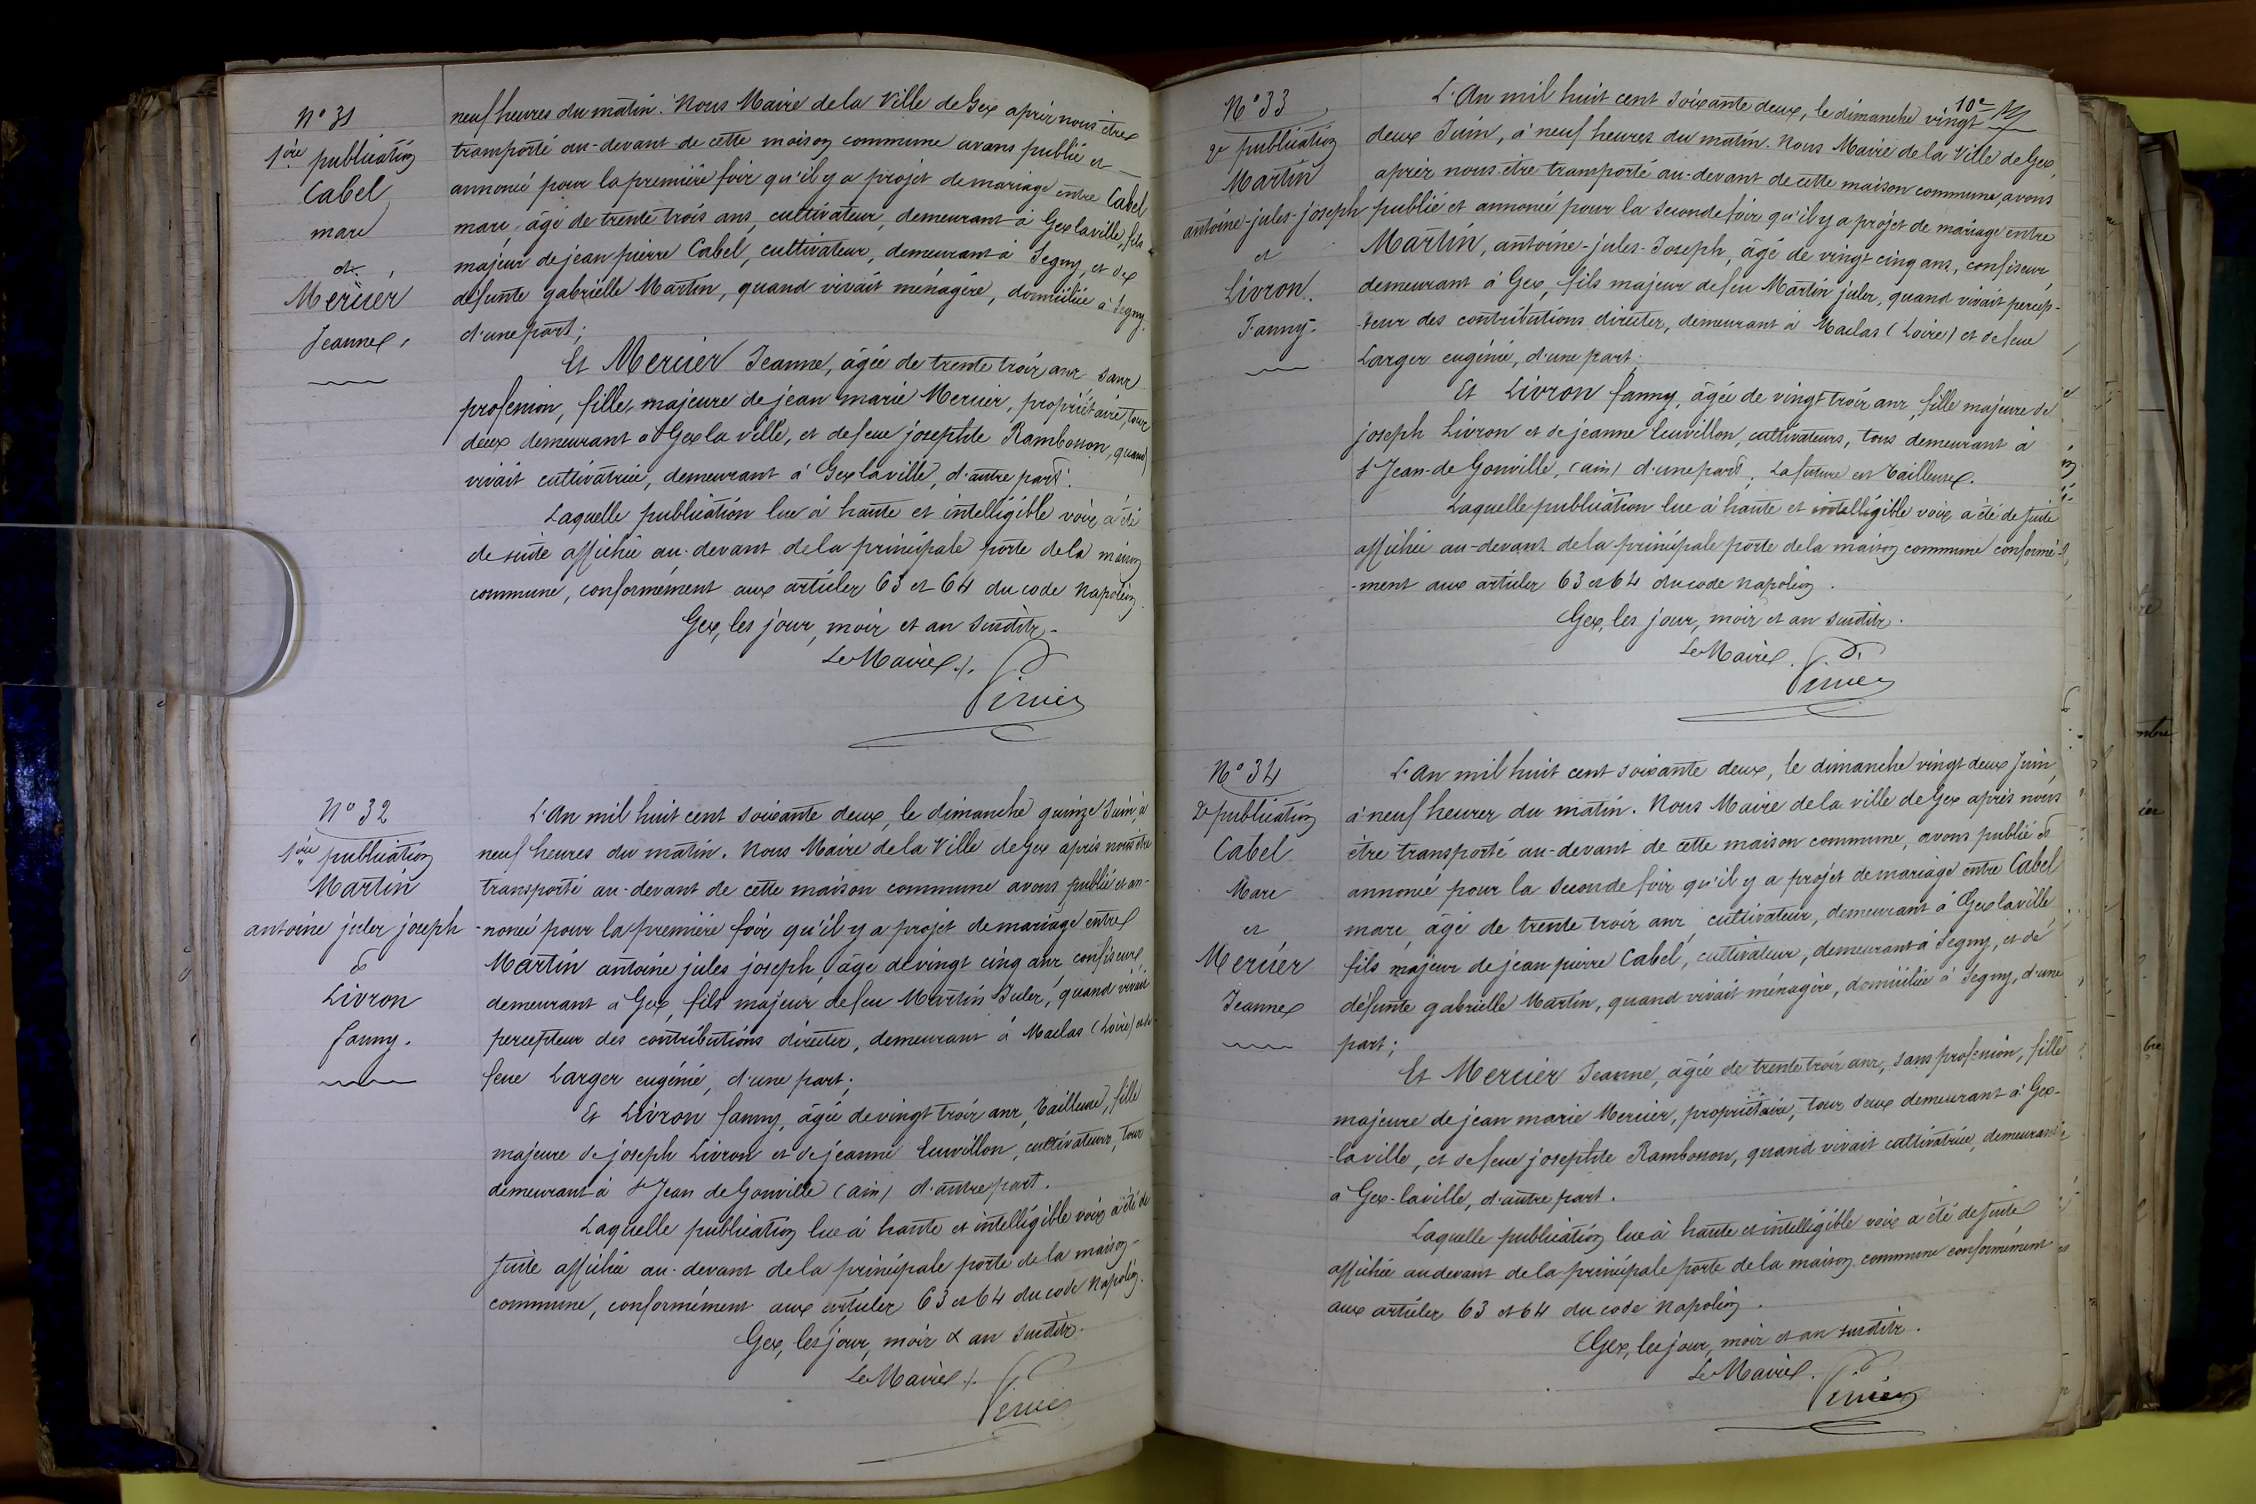 N° 31
1ère publication
Cabel
marc
et
Mercier
Jeanne
neuf heures du matin. Nous Maire de la Ville de Gex après nous être
transporté au-devant de cette maison commune avons publié et
annoncé pour la première fois qu'il y a projet de mariage entre Cabel
marc, âgé de trente trois ans, cultivateur, demeurant à Gex la ville, fils
majeur de jean pierre Cabel, cultivateur, demeurant à Segny, et de
défunte gabrielle Martin, quand vivait ménagère, domiciliée à Segny.
d'une part;
Et Mercier Jeanne, âgée de trente trois ans sans
profession, fille majeure de jean marie Mercier, propriétaire, tous
deux demeurant à Gex la ville, et de feue josephte Rambosson, quand
vivait cultivatrice, demeurant à Gex la ville, d'autre part.
Laquelle publication lue à haute et intelligible voix, a été
de suite affichée au-devant de la principale porte de la maison
commune, conformément aux articles 63 et 64 du code napoléon.
Gex, les jour, mois et an susdits.
Le Maire
N° 32
1ère publication
Martin
antoine jules joseph
et
Livron
fanny.
L'An mil huit cent soixante deux, le dimanche quinze Juin, à
neuf heures du matin. Nous Maire de la Ville de Gex après nous être
transporté au-devant de cette maison commune avons publié et an-
-noncé pour la première fois qu'il y a projet de mariage entre
Martin antoine jules joseph, âgé de vingt cinq ans, confiseur,
demeurant à Gex, fils majeur de feu Martin Jules, quand vivait
percepteur des contributions directes, demeurant à Maclas (Loire) et de
feue Larger eugénie, d'une part;
Et Livron fanny, âgée de vingt trois ans, tailleuse, fille
majeure de joseph Livron et de jeanne Euvillon, cultivateurs, tous
demeurant à St Jean de Gonville (ain) d'autre part.
Laquelle publication lue à haute et intelligible voix a été de
suite affichée au-devant de la principale porte de la maison-
commune, conformément aux articles 63 et 64 du code Napoléon.
Gex, les jour, mois & an susdits.
Le Maire
10e
N° 33
2e publication
Martin
antoine-jules-joseph
et
Livron.
Fanny.
L'An mil huit cent soixante deux, le dimanche vingt
deux Juin, à neuf heures du matin. Nous Maire de la Ville de Gex,
après nous être transporté au-devant de cette maison commune, avons
publié et annoncé pour la seconde fois qu'il y a projet de mariage entre
Martin, antoine-jules-Joseph, âgé de vingt cinq ans, confiseur,
demeurant à Gex, fils majeur de feu Martin jules, quand vivait percep-
-teur des contributions directes, demeurant à Maclas (Loire) et de feue
Larger eugénie, d'une part.
Et Livron fanny, âgée de vingt trois ans, fille majeure de
joseph Livron et de jeanne Euvillon, cultivateurs, tous demeurant à
St Jean-de Gonville, (ain) d'une part; La future est Tailleuse.
Laquelle publication lue à haute et intelligible voix, a été de suite
affichée au-devant de la principale porte de la maison commune conformé-
-ment aux articles 63 et 64 du code napoléon.
Gex, les jour, mois et an susdits.
Le Maire.
N° 34
2e publication
Cabel
Marc
et
Mercier
Jeanne
L'an mil huit cent soixante deux, le dimanche vingt deux Juin,
à neuf heures du matin. Nous Maire de la ville de Gex après nous
être transporté au-devant de cette maison commune, avons publié et
annoncé pour la seconde fois qu'il y a projet de mariage entre Cabel
marc, âgé de trente trois ans, cultivateur, demeurant à Gex la ville
fils majeur de jean pierre Cabel, cultivateur, demeurant à Segny, et de
défunte gabrielle Martin, quand vivait ménagère, domiciliée à Segny, d'une
part;
Et Mercier Jeanne, âgée de trente trois ans, sans profession, fille
majeure de jean marie Mercier, propriétaire, tous deux demeurant à Gex-
-la ville, et de feue josephte Rambosson, quand vivait cultivatrice, demeurant
à Gex-la ville, d'autre part.
Laquelle publication lue à haute et intelligible voix a été de suite
affichée au devant de la principale porte de la maison commune conformément
aux articles 63 et 64 du code Napoléon.
Gex, les jour, mois et an susdits.
Le Maire.